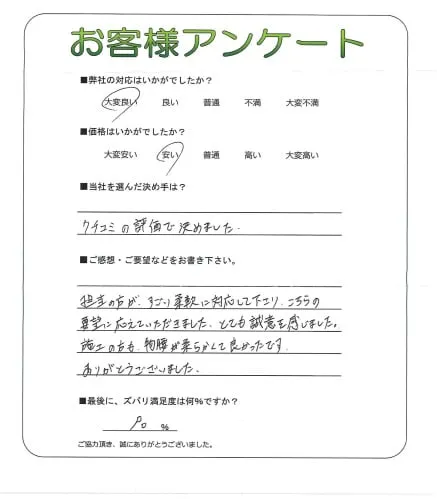 お客様アンケート
■弊社の対応はいかがでしたか？
大変良い 良い 普通 不満 大変不満
■価格はいかがでしたか？
大変安い 安い 普通 高い 大変高い
■当社を選んだ決め手は？
クチコミの評価で決めました.
■ご感想・ご要望などをお書き下さい。
担当の方が、すごく柔軟に対応して下さり、こちらの
要望に応えていただきました。とても誠意を感じました。
施工の方も、物腰が柔らかくて良かったです.
ありがとうございました.
■最後に、ズバリ満足度は何%ですか？
90 %
ご協力頂き、誠にありがとうございました。